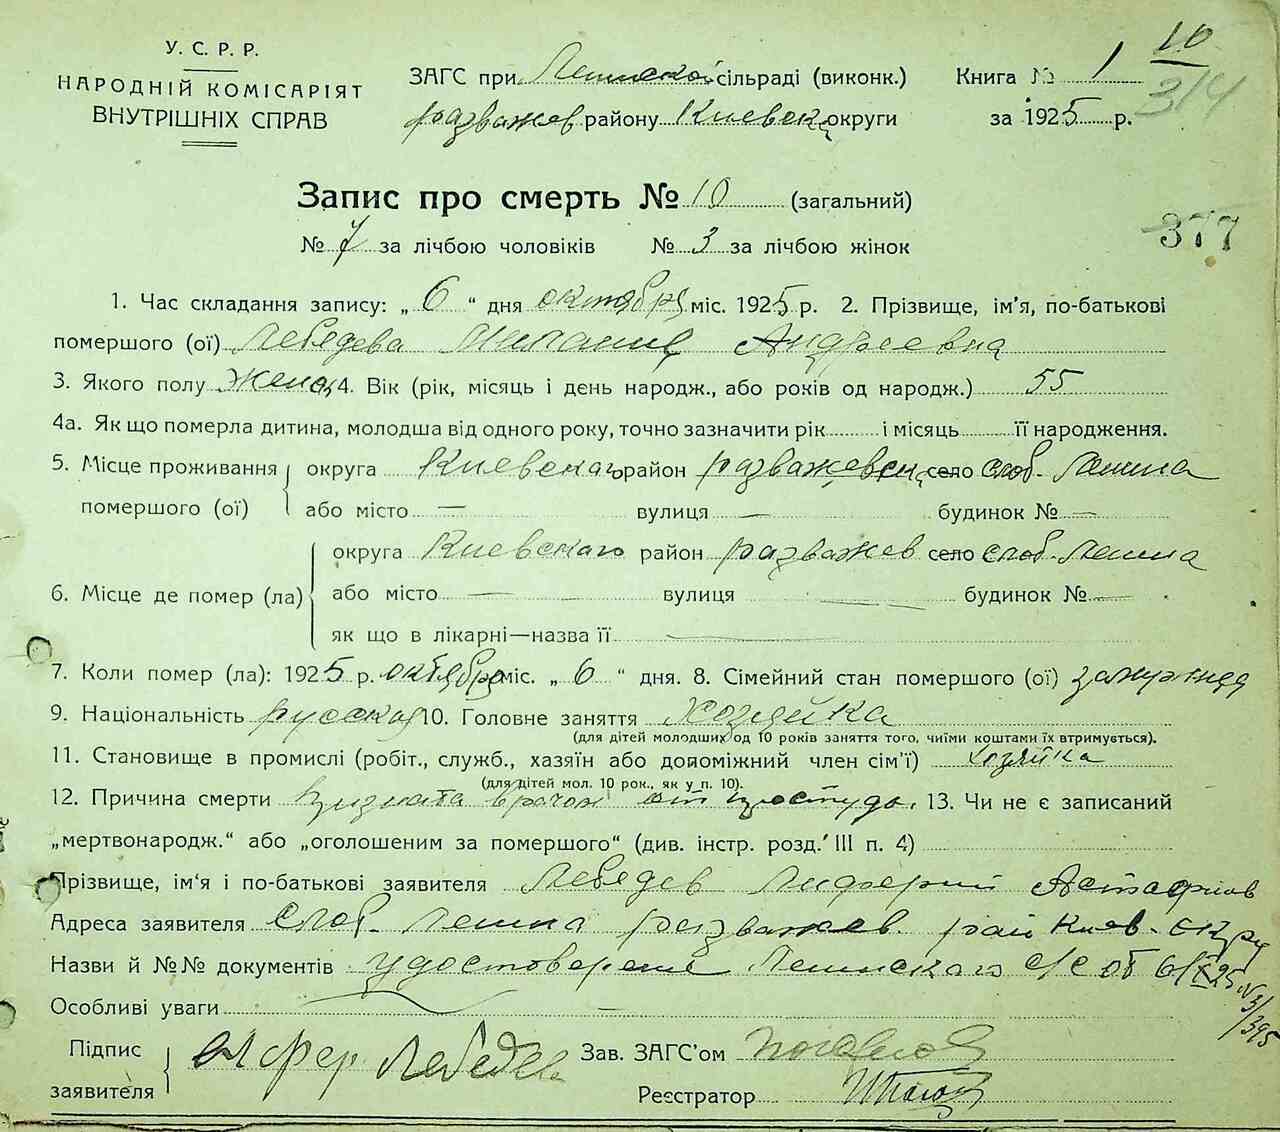 У. С. Р. Р.
НАРОДНІЙ КОМІСАРІЯТ
ВНУТРІШНІХ СПРАВ
ЗАГС при сільраді (виконк.)
разважев району Киевск округи
Книга № 1
за 1925 р.
10
314
Запис про смерть № 10 (загальний)
№ 7 за лічбою чоловіків № 3 за лічбою жінок
377
1. Час складання запису: „ 6 “ дня октября міс. 1925 р. 2. Прізвище, ім'я, по-батькові
помершого (ої) Лебедева Андреевна
3. Якого полу Жен 4. Вік (рік, місяць і день народж., або років од народж.) 55
4а. Як що померла дитина, молодша від одного року, точно зазначити рік і місяць її народження.
5. Місце проживання округа Киевскаго район разважевск село слоб.
помершого (ої) або місто — вулиця — будинок № —
округа Киевскаго район разважев село слоб.
6. Місце де помер (ла) або місто — вулиця — будинок № —
як що в лікарні—назва її —
7. Коли помер (ла): 1925 р. октября міс. „ 6 “ дня. 8. Сімейний стан помершого (ої)
9. Національність русская 10. Головне заняття хозяйка
(для дітей молодших од 10 років заняття того, чиїми коштами їх втримується).
11. Становище в промислі (робіт., служб., хазяїн або допоміжний член сім'ї) хозяйка
(для дітей мол. 10 рок., як у п. 10).
12. Причина смерти врачом от простуды. 13. Чи не є записаний
„мертвонародж.“ або „оголошеним за помершого“ (див. інстр. розд. III п. 4)
Прізвище, ім'я і по-батькові заявителя Лебедев
Адреса заявителя Слоб. разважев. рай Киев. округ
Назви й №№ документів удостоверение с/с от 6/X 25 N 3/395
Особливі уваги
Підпис заявителя Лебедев Зав. ЗАГС'ом
Реєстратор